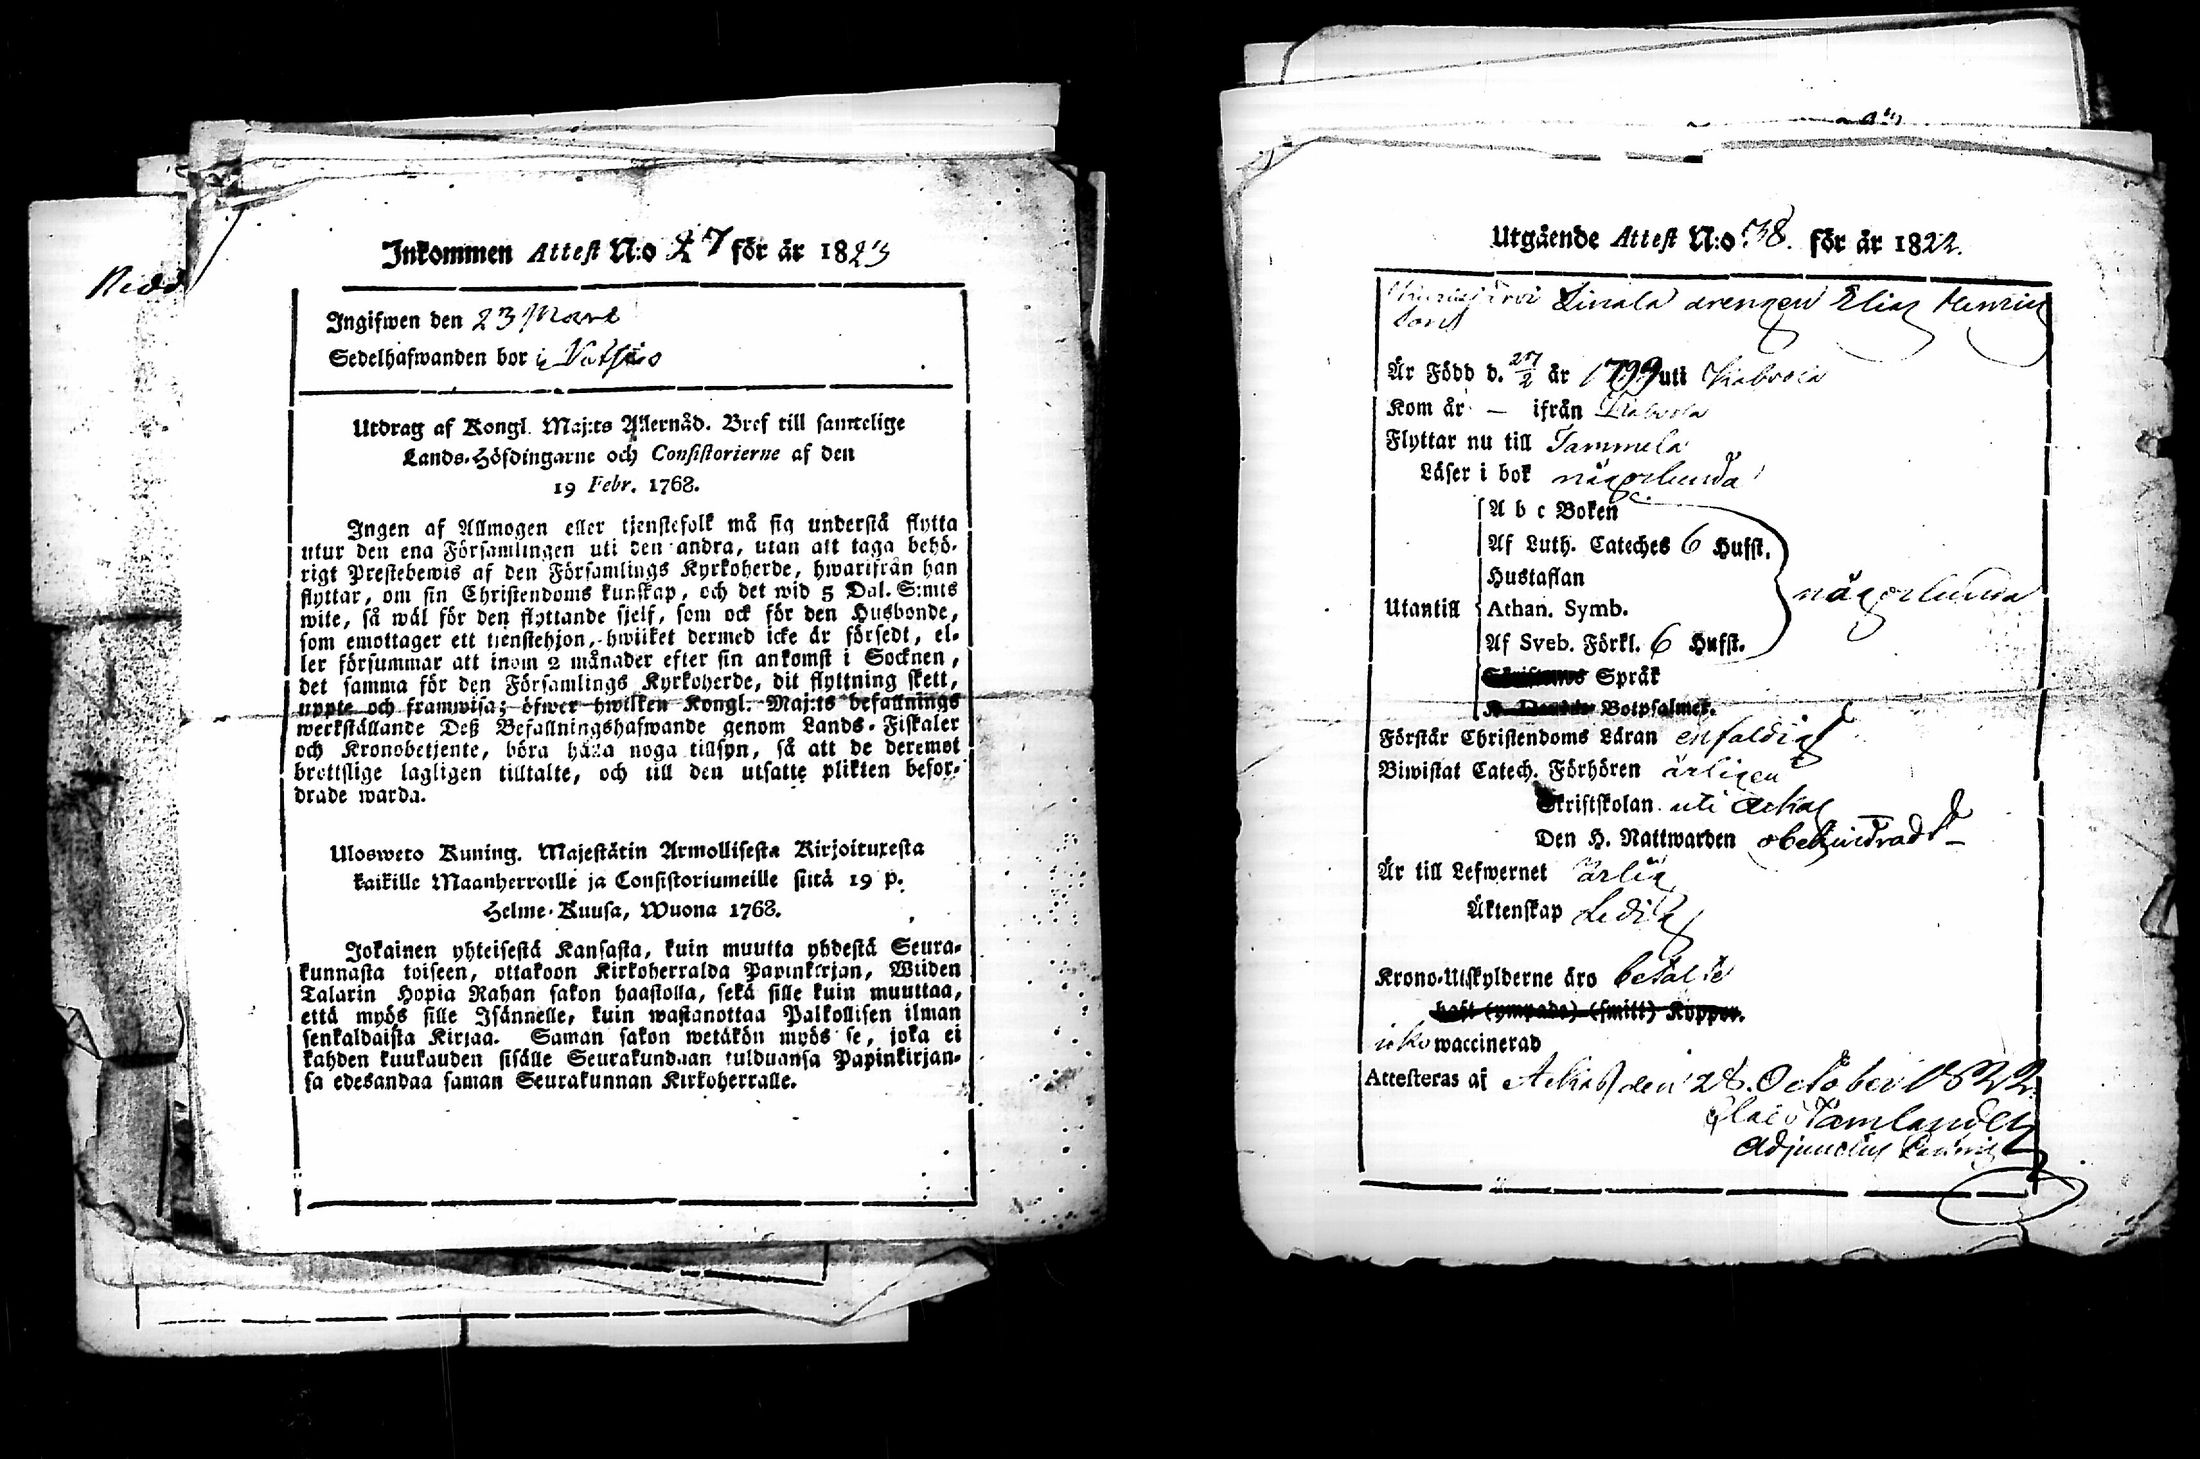 Inkommen Attest N:o 27 för år 1823
Ingifwen den 23 Mart
Sedelhafwanden bor i
Utdrag af Kongl. Maj:ts Allernåd. Bref till samtelige
Lands-Höfdingarne och Consistorierne af den
19 Febr. 1768.
Ingen af Allmogen eller tjenstefolk må sig understå flytta
utur den ena Församlingen uti den andra, utan att taga behö-
rigt Prestebewis af den Församlings Kyrkoherde, hwarifrån han
flyttar, om sin Christendoms kunskap, och det wid 5 Dal. S:mts
wite, så wäl för den flyttande sjelf, som ock för den Husbonde,
som emottager ett tjenstehjon, hwilket dermed icke är försedt, el-
ler försummar att inom 2 månader efter sin ankomst i Socknen,
det samma för den Församlings Kyrkoherde, dit flyttning skett,
uppte och framwisa; öfwer hwilken Kongl. Maj:ts befallnings
werkställande Deß Befallningshafwande genom Lands-Fiskaler
och Kronobetjente, böra hålla noga tillsyn, så att de deremot
brottslige lagligen tilltalte, och till den utsatte plikten befor-
drade warda.
Ulosweto Kuning. Majestätin Armollisesta Kirjoituxesta
kaikille Maanherroille ja Consistoriumeille siitä 19 p.
Helme-Kuusa, Wuona 1768.
Jokainen yhteisestä Kansasta, kuin muutta yhdestä Seura-
kunnasta toiseen, ottakoon Kirkoherralda Papinkirjan, Wiiden
Talarin Hopia Rahan sakon haastolla, sekä sille kuin muuttaa,
että myös sille Isännelle, kuin wastanottaa Palkollisen ilman
senkaldaista Kirjaa. Saman sakon wetäkön myös se, joka ei
kahden kuukauden sisälle Seurakundaan tulduansa Papinkirjan-
sa edesandaa saman Seurakunnan Kirkoherralle.
Utgående Attest N:o 38. för år 1822.
drengen Elias Henrics
son
Är Född d. 27/2 år 1799 uti
Kom år — ifrån
Flyttar nu till Tammela
Läser i bok någorlunda
A b c Boken
Af Luth. Cateches 6 Hufst.
Hustaflan
Utantill Athan. Symb. någorlunda
Af Sveb. Förkl. 6 Hufst.
Språk
Botpsalmer.
Förstår Christendoms Läran enfaldigt
Biwistat Catech. Förhören årligen
Skriftskolan uti Ackas
Den H. Nattwarden obehindradt
Är till Lefwernet ärlig
Äktenskap Ledig
Krono-Utskylderne äro betalte
haft (ympade) (smitt) Koppor.
waccinerad
Attesteras af Ackas den 28. October 1822
Adjunctus